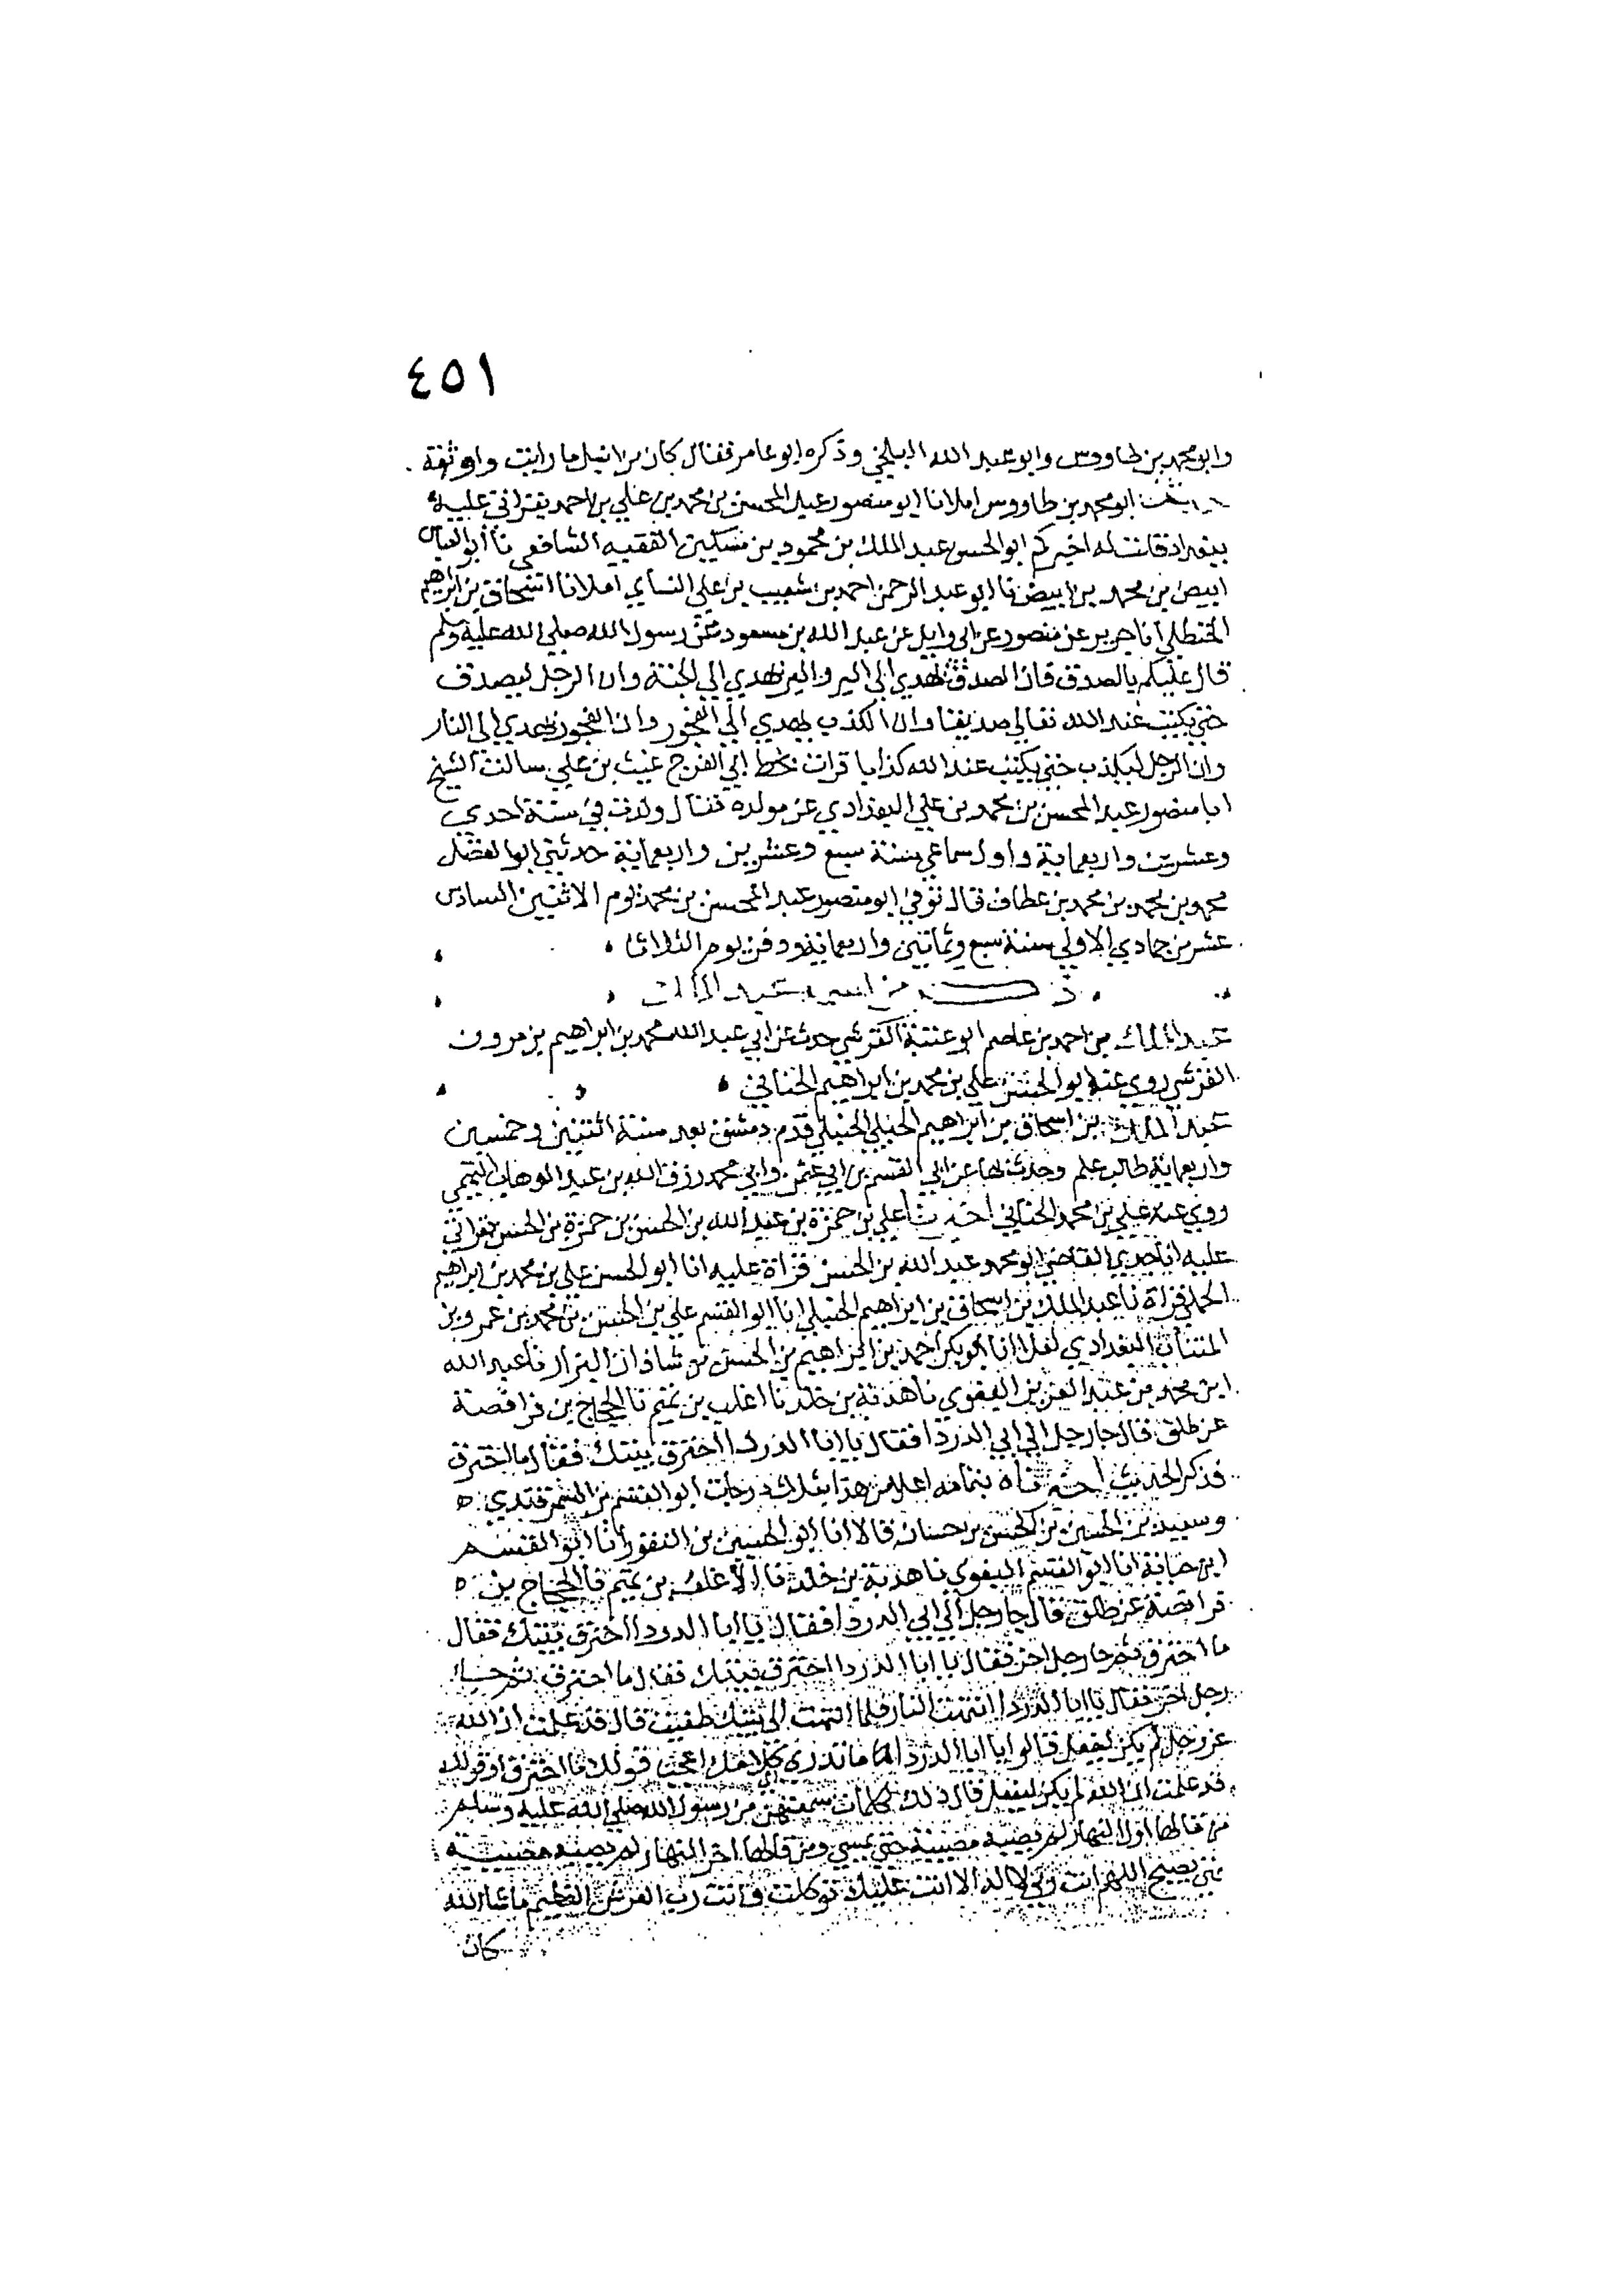 ٤٥١
وابو محمد بن طاووس وابو عبد الله البلخي وذكره ابو عامر فقال كان من انبل ما رايت واوثقه
ابو محمد بن طاووس املا نا ابو منصور عبد المحسن بن محمد بن علي بن احمد بقراتي عليه
ببغداد قلت له اخبركم ابو الحسن عبد الملك بن محمود بن مسكين الفقيه الشافعي نا ابو العباس
ابيض بن محمد بن ابيض نا ابو عبد الرحمن احمد بن شعيب بن علي النساي املا نا اسحاق بن ابراهيم
الحنظلي انا جرير عن منصور عن ابي وايل عن عبد الله بن مسعود عن رسول الله صلي الله عليه وسلم
قال عليكم بالصدق فان الصدق يهدي الي البر والبر يهدي الي الجنة وان الرجل ليصدق
حتي يكتب عند الله تعالي صديقا وان الكذب يهدي الي الفجور وان الفجور يهدي الي النار
وان الرجل ليكذب حتي يكتب عند الله كذابا قرات بخط ابي الفرج غيث بن علي سالت الشيخ
ابا منصور عبد المحسن بن محمد بن علي البغدادي عن مولده فقال ولدت في سنة احدي
وعشرين واربعماية واول سماعي سنة سبع وعشرين واربعماية حدثني ابو الفضل
محمد بن محمد بن محمد بن عطاف قال توفي ابو منصور عبد المحسن بن محمد يوم الاثنين السادس
عشر من جمادي الاولي سنة سبع وثمانين واربعماية ودفن يوم الثلاثا
ذكر من اسمه عبد الملك
عبد الملك بن احمد بن عاصم ابو عتبة القرشي حدث عن ابي عبد الله محمد بن ابراهيم بن مروان
القرشي روي عنه ابو الحسن علي بن محمد بن ابراهيم الحنائي
عبد الملك بن اسحاق بن ابراهيم الجبلي الحنبلي قدم دمشق بعد سنة اثنتين وخمسين
واربعماية طالب علم وحدث بها عن ابي القسم بن ابي عثمن وابي محمد رزق الله بن عبد الوهاب التميمي
روي عنه علي بن محمد الحنائي اخبرنا علي بن حمزة بن عبد الله بن الحسن بن حمزة بن الحسن بقراتي
عليه انا جدي القاضي ابو محمد عبد الله بن الحسن قراة عليه انا ابو الحسن علي بن محمد بن ابراهيم
قراة نا عبد الملك بن اسحاق بن ابراهيم الحنبلي انا ابو القسم علي بن الحسن بن محمد بن عمرو بن
المنتاب البغدادي انا ابو بكر احمد بن ابراهيم بن الحسن بن شاذان البزار نا عبد الله
ابن محمد بن عبد العزيز البغوي نا هدبة بن خلد نا اغلب بن تميم نا الحجاج بن فرافصة
عن طلق قال جا رجل الي ابي الدردا فقال يا ابا الدردا احترق بيتك فقال ما احترق
فذكر الحديث بتمامه اعلا من هذا بثلاث درجات ابو القسم بن السمرقندي
وسعيد بن الحسين بن الحسن بن حسان قالا انا ابو الحسين بن النقور انا ابو القسم
ابن حبابة انا ابو القسم البغوي نا هدبة بن خلد نا الاغلب بن تميم نا الحجاج بن
فرافصة عن طلق قال جا رجل الي ابي الدردا فقال يا ابا الدردا احترق بيتك فقال
ما احترق ثم جا رجل اخر فقال يا ابا الدردا احترق بيتك فقال ما احترق ثم جا
رجل اخر فقال يا ابا الدردا انتهت النار فلما انتهت الي بيتك طفيت قال قد علمت ان الله
عز وجل لم يكن ليفعل قالوا يا ابا الدردا ما ندري كلامك اعجب قولك ما احترق او قولك
قد علمت ان الله لم يكن ليفعل قال ذلك كلمات سمعتهن من رسول الله صلي الله عليه وسلم
من قالها اول النهار لم يصبه مصيبة حتي يمسي ومن قالها اخر النهار لم يصبه مصيبة
حتي يصبح اللهم انت ربي لا اله الا انت عليك توكلت وانت رب العرش العظيم ما شا الله
كان